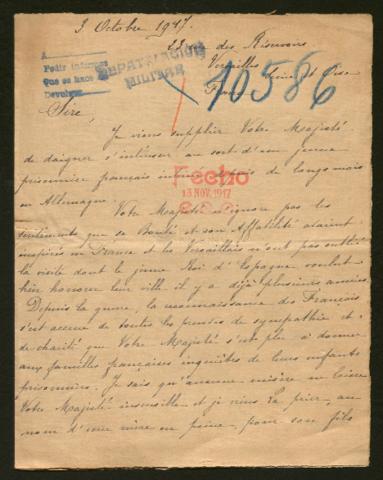 3 Octobre 1917.
23 rue des Réservoirs
Versailles Seine et Oise
France
A
Pedir informes
Que se hace
Devolver
REPATRIACION
MILITAR
10586
Sire,
Je viens supplier Votre Majesté
de daigner s'intéresser au sort d'un jeune
prisonnier français interné depuis de longs mois
en Allemagne.
Fecho
13 NOV. 1917
Votre Majesté n'ignore pas les
sentiments que sa Bonté et son Affabilité avaient
inspirés en France et les Versaillais n'ont pas oublié
la visite dont le jeune Roi d'Espagne voulut
bien honorer leur ville il y a déjà plusieurs années.
Depuis la guerre, la reconnaissance des Français
s'est accrue de toutes les preuves de sympathie et
de charité que Votre Majesté s'est plu à donner
aux familles françaises inquiètes de leurs enfants
prisonniers. Je sais qu'aucune misère ne laisse
Votre Majesté insensible et je viens La prier, au
nom d'une mère en peine, pour son fils